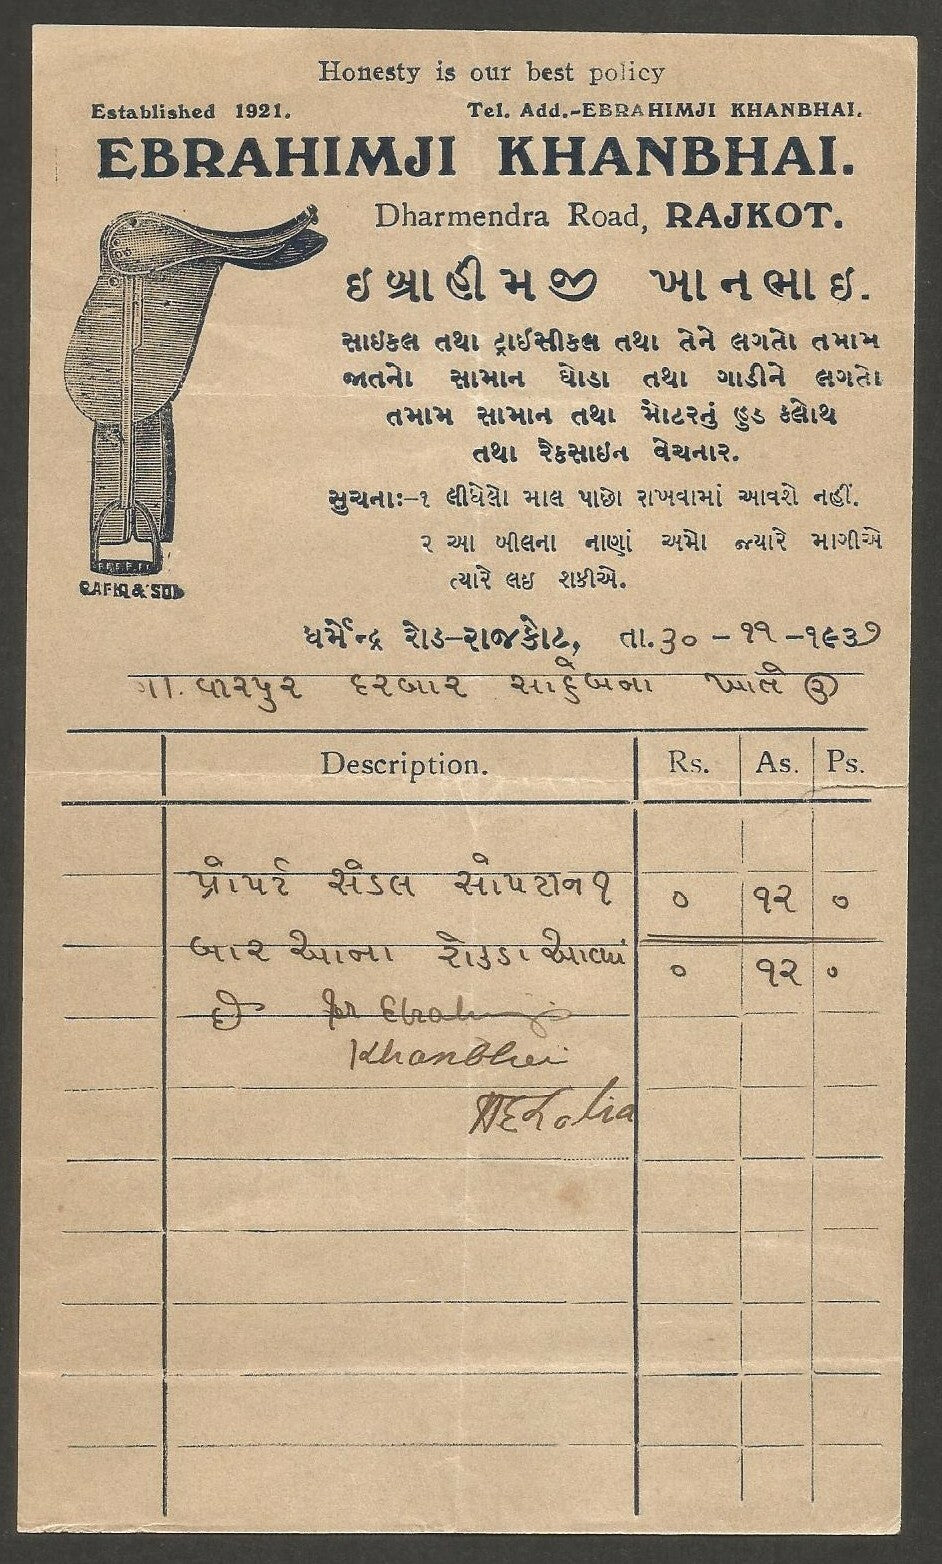 Honesty is our best policy
Established 1921. Tel. Add.-EBRAHIMJI KHANBHAI.
EBRAHIMJI KHANBHAI.
Dharmendra Road, RAJKOT.
ઇબ્રાહીમજી ખાનભાઇ.
સાઇકલ તથા ટ્રાઈસીકલ તથા તેને લગતો તમામ
જાતનો સામાન ઘોડા તથા ગાડીને લગતો
તમામ સામાન તથા મોટરનું હુડ કલોથ
તથા રેકસાઇન વેચનાર.
સુચનાઃ-૧ લીધેલો માલ પાછો રાખવામાં આવશે નહીં.
૨ આ બીલના નાણાં અમો જ્યારે માગીએ
ત્યારે લઇ શકીએ.
RAFIQ & SON
ધર્મેન્દ્ર રોડ-રાજકોટ, તા. ૩૦ - ૧૧ -૧૯૩૭
વીરપુર દરબાર સાહેબના ખાતે
Description. Rs. As. Ps.
સેંડલ સોપટીન ૧ ૦ ૧૨ ૦
બાર આના રોકડા આવ્યાં ૦ ૧૨ ૦
છે for Ebrahimji
Khanbhai